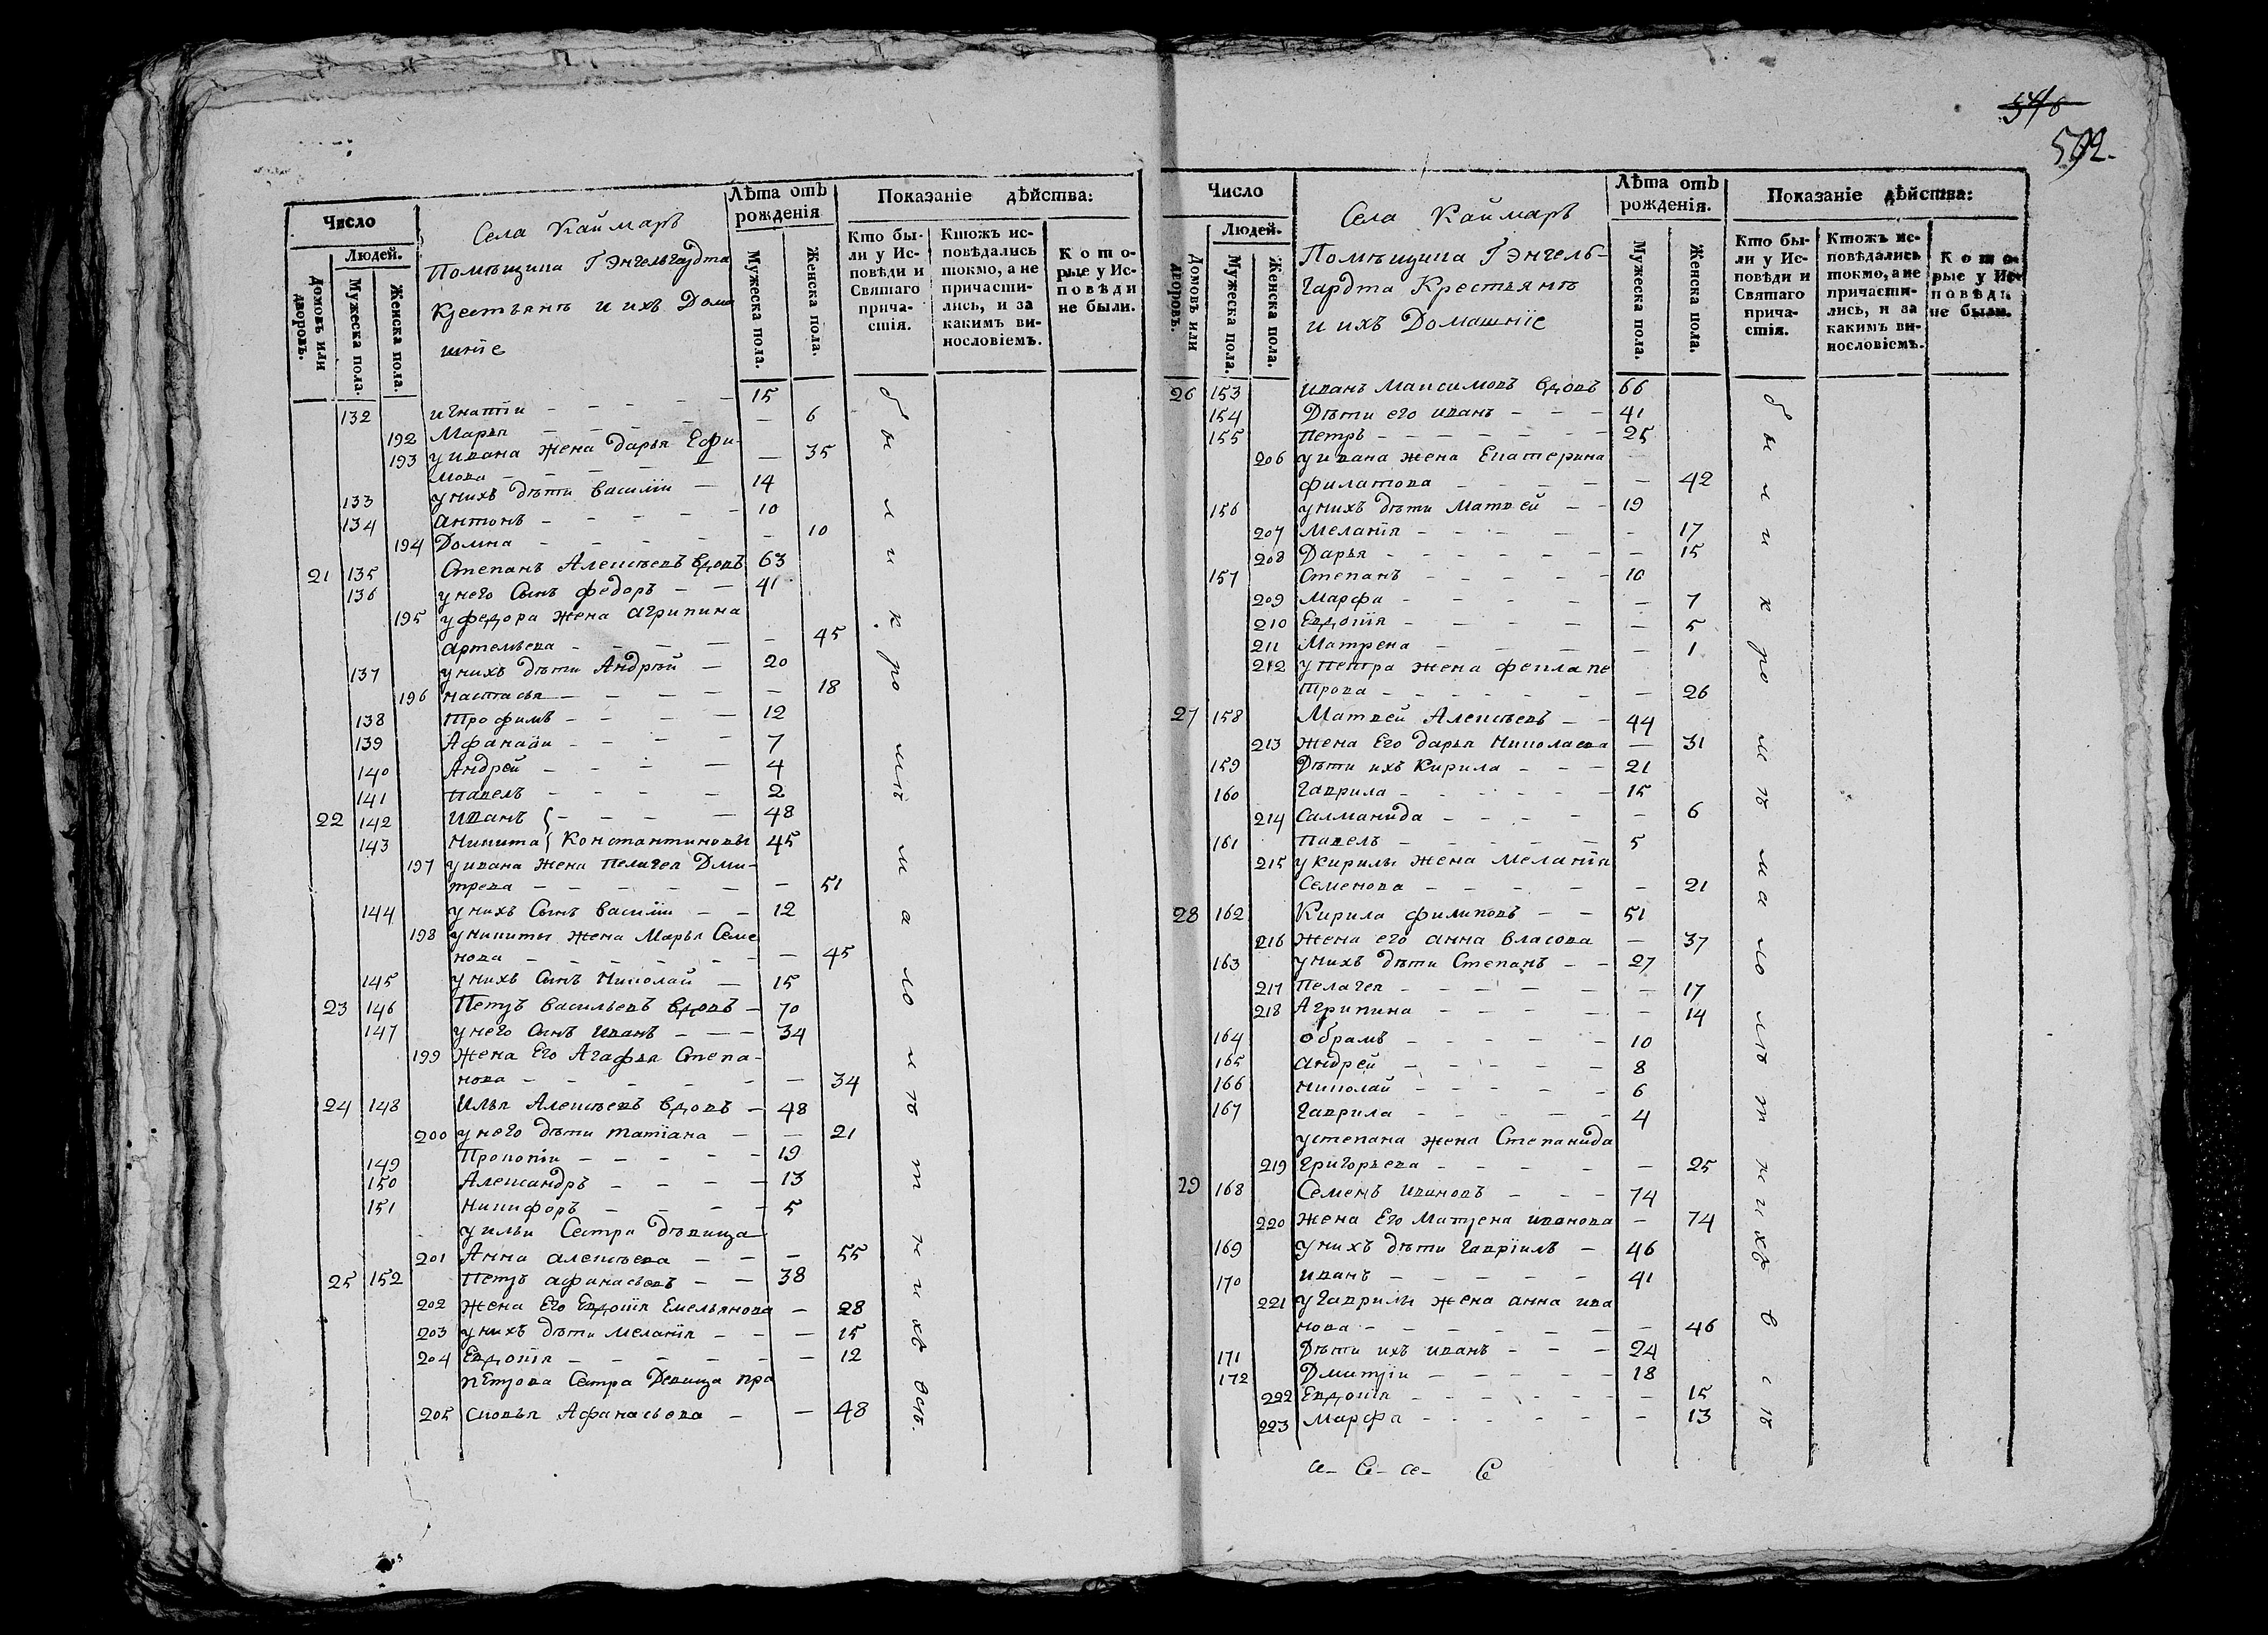 546
592.
Число
Людей.
Домовъ или дворовъ.
Мужеска пола.
Женска пола.
Села Каймаръ
Помѣщика Гэнгельгардта
Крестьянъ и ихъ Дома
шніе
Лѣта отъ рожденія
Мужеска пола.
Женска пола.
Показаніе дѣйства:
Кто бы-
ли у Ис-
повѣди и
Святаго
прича-
стія.
Ктожъ ис-
повѣдались
токмо, а не
причасти-
лись, и за
какимъ ви-
нословіемъ.
Кото-
рые у Ис-
повѣди
не были.
132 игнатіи - - - - - 15
192 Марья - - - - - 6
193 у ивана жена дарья Ефи-
мова - - - - - 35
133 у нихъ дѣти василіи - 14
134 антонъ - - - - - 10
194 Домна - - - - - 10
21 135 Степанъ Алексѣевъ вдовъ 63
136 у него Сынъ федоръ - - 41
195 у федора жена агрипина
артемьева - - - - - 45
137 у нихъ дѣти Андрѣй - 20
196 настасья - - - - - 18
138 трофимъ - - - - 12
139 Афанасіи - - - - 7
140 Андрей - - - - 4
141 павелъ - - - - 2
22 142 Иванъ { - - - - 48
143 никита { Константиновы 45
197 у ивана жена пелагея Дми-
трева - - - - - - 51
144 у нихъ Сынъ василіи - - 12
198 у никиты жена Марья Семе
нова - - - - - - - 45
145 у нихъ Сынъ николай - 15
23 146 Петръ васильевъ вдовъ - 70
147 у него Сынъ иванъ - - - 34
199 жена Его Агафья Степа-
нова - - - - - - 34
24 148 Илья Алексѣевъ вдовъ - 48
200 у него дѣти татіана - - 21
149 Прокопіи - - - - - 19
150 Александръ - - - - 13
151 никифоръ - - - - 5
у ильи Сестра дѣвица
201 Анна алексѣева - - - 55
25 152 петръ афанасьевъ - - 38
202 жена Его Евдокія Емельянова - 28
203 у нихъ дѣти меланія - - - 15
204 Евдокія - - - - - - 12
пЕтрова Сестра Девица пра
205 сковья Афанасьева - - 48
были кромѣ малолѣтнихъ
Число
Людей.
Домовъ или дворовъ.
Мужеска пола.
Женска пола.
Села Каймаръ
Помѣщика Гэнгель-
гардта Крестьянъ
и ихъ Домашніе
Лѣта отъ рожденія.
Мужеска пола.
Женска пола.
Показаніе дѣйства:
Кто бы-
ли у Ис-
повѣди и
Святаго
прича-
стія.
Ктожъ ис-
повѣдались
токмо, а не
причасти-
лись, и за
какимъ ви-
нословіемъ.
Кото-
рые у Ис-
повѣди
не были.
26 153 иванъ Максимовъ вдовъ 66
154 Дѣти его иванъ - - - 41
155 петръ - - - - - - 25
206 у ивана жена Екатерина
филатова - - - - - 42
156 у нихъ дѣти Матвей - - 19
207 Меланія - - - - - 17
208 Дарья - - - - - - 15
157 Степанъ - - - - - 10
209 Марфа - - - - - 7
210 Евдокія - - - - - 5
211 Матрена - - - - - 1
212 у петра жена фекла пе
трова - - - - - - 26
27 158 Матвей Алексѣевъ - - 44
213 жена Его дарья николаева - 31
159 Дѣти ихъ Кирила - - - 21
160 гаврила - - - - - - 15
214 Салманида - - - - - 6
161 павелъ - - - - - 5
215 у кирилы жена Меланія
Семенова - - - - - 21
28 162 Кирила филиповъ - - 51
216 жена его анна власова - 37
163 у нихъ дѣти Степанъ - - 27
217 пелагея - - - - - - 17
218 Агрипина - - - - - 14
164 обрамъ - - - - - 10
165 андрей - - - - - 8
166 николай - - - - - 6
167 гаврила - - - - - 4
у степана жена Степанида
219 григорьева - - - - - 25
29 168 Семенъ ивановъ - - - 74
220 жена Его Матрена иванова - 74
169 у нихъ дѣти гавріилъ - 46
170 иванъ - - - - - 41
221 у гаврилы жена анна ива
нова - - - - - - - 46
171 Дѣти ихъ иванъ - - - 24
172 Дмитріи - - - - - 18
222 Евдокія - - - - - - 15
223 Марфа - - - - - - 13
были кромѣ малолѣтнихъ всѣ